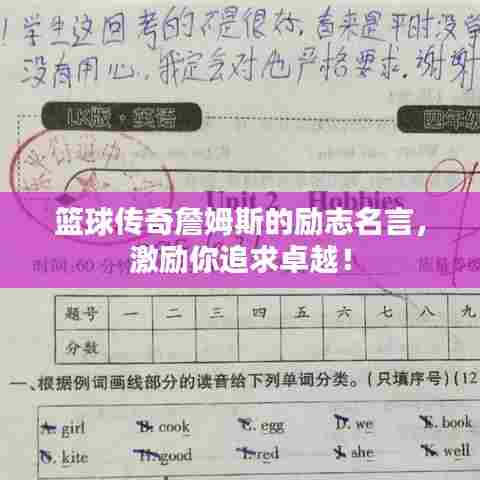 ！学生这回考的不是很好，看来是平时没学
没有用心，我定会对他严格要求，谢谢
LK版·英语
四年级
Unit 2 Hobbies
篮球传奇詹姆斯的励志名言，
激励你追求卓越！
时间：60分钟
质量等级
题号 一 二 三 四 五 六 七 八 九
分数
一、根据例词画线部分的读音给下列单词分类。（只填序号）（12
A. girl B. cook C. egg D. we E. book
G. kite H. good I. red J. she K. well